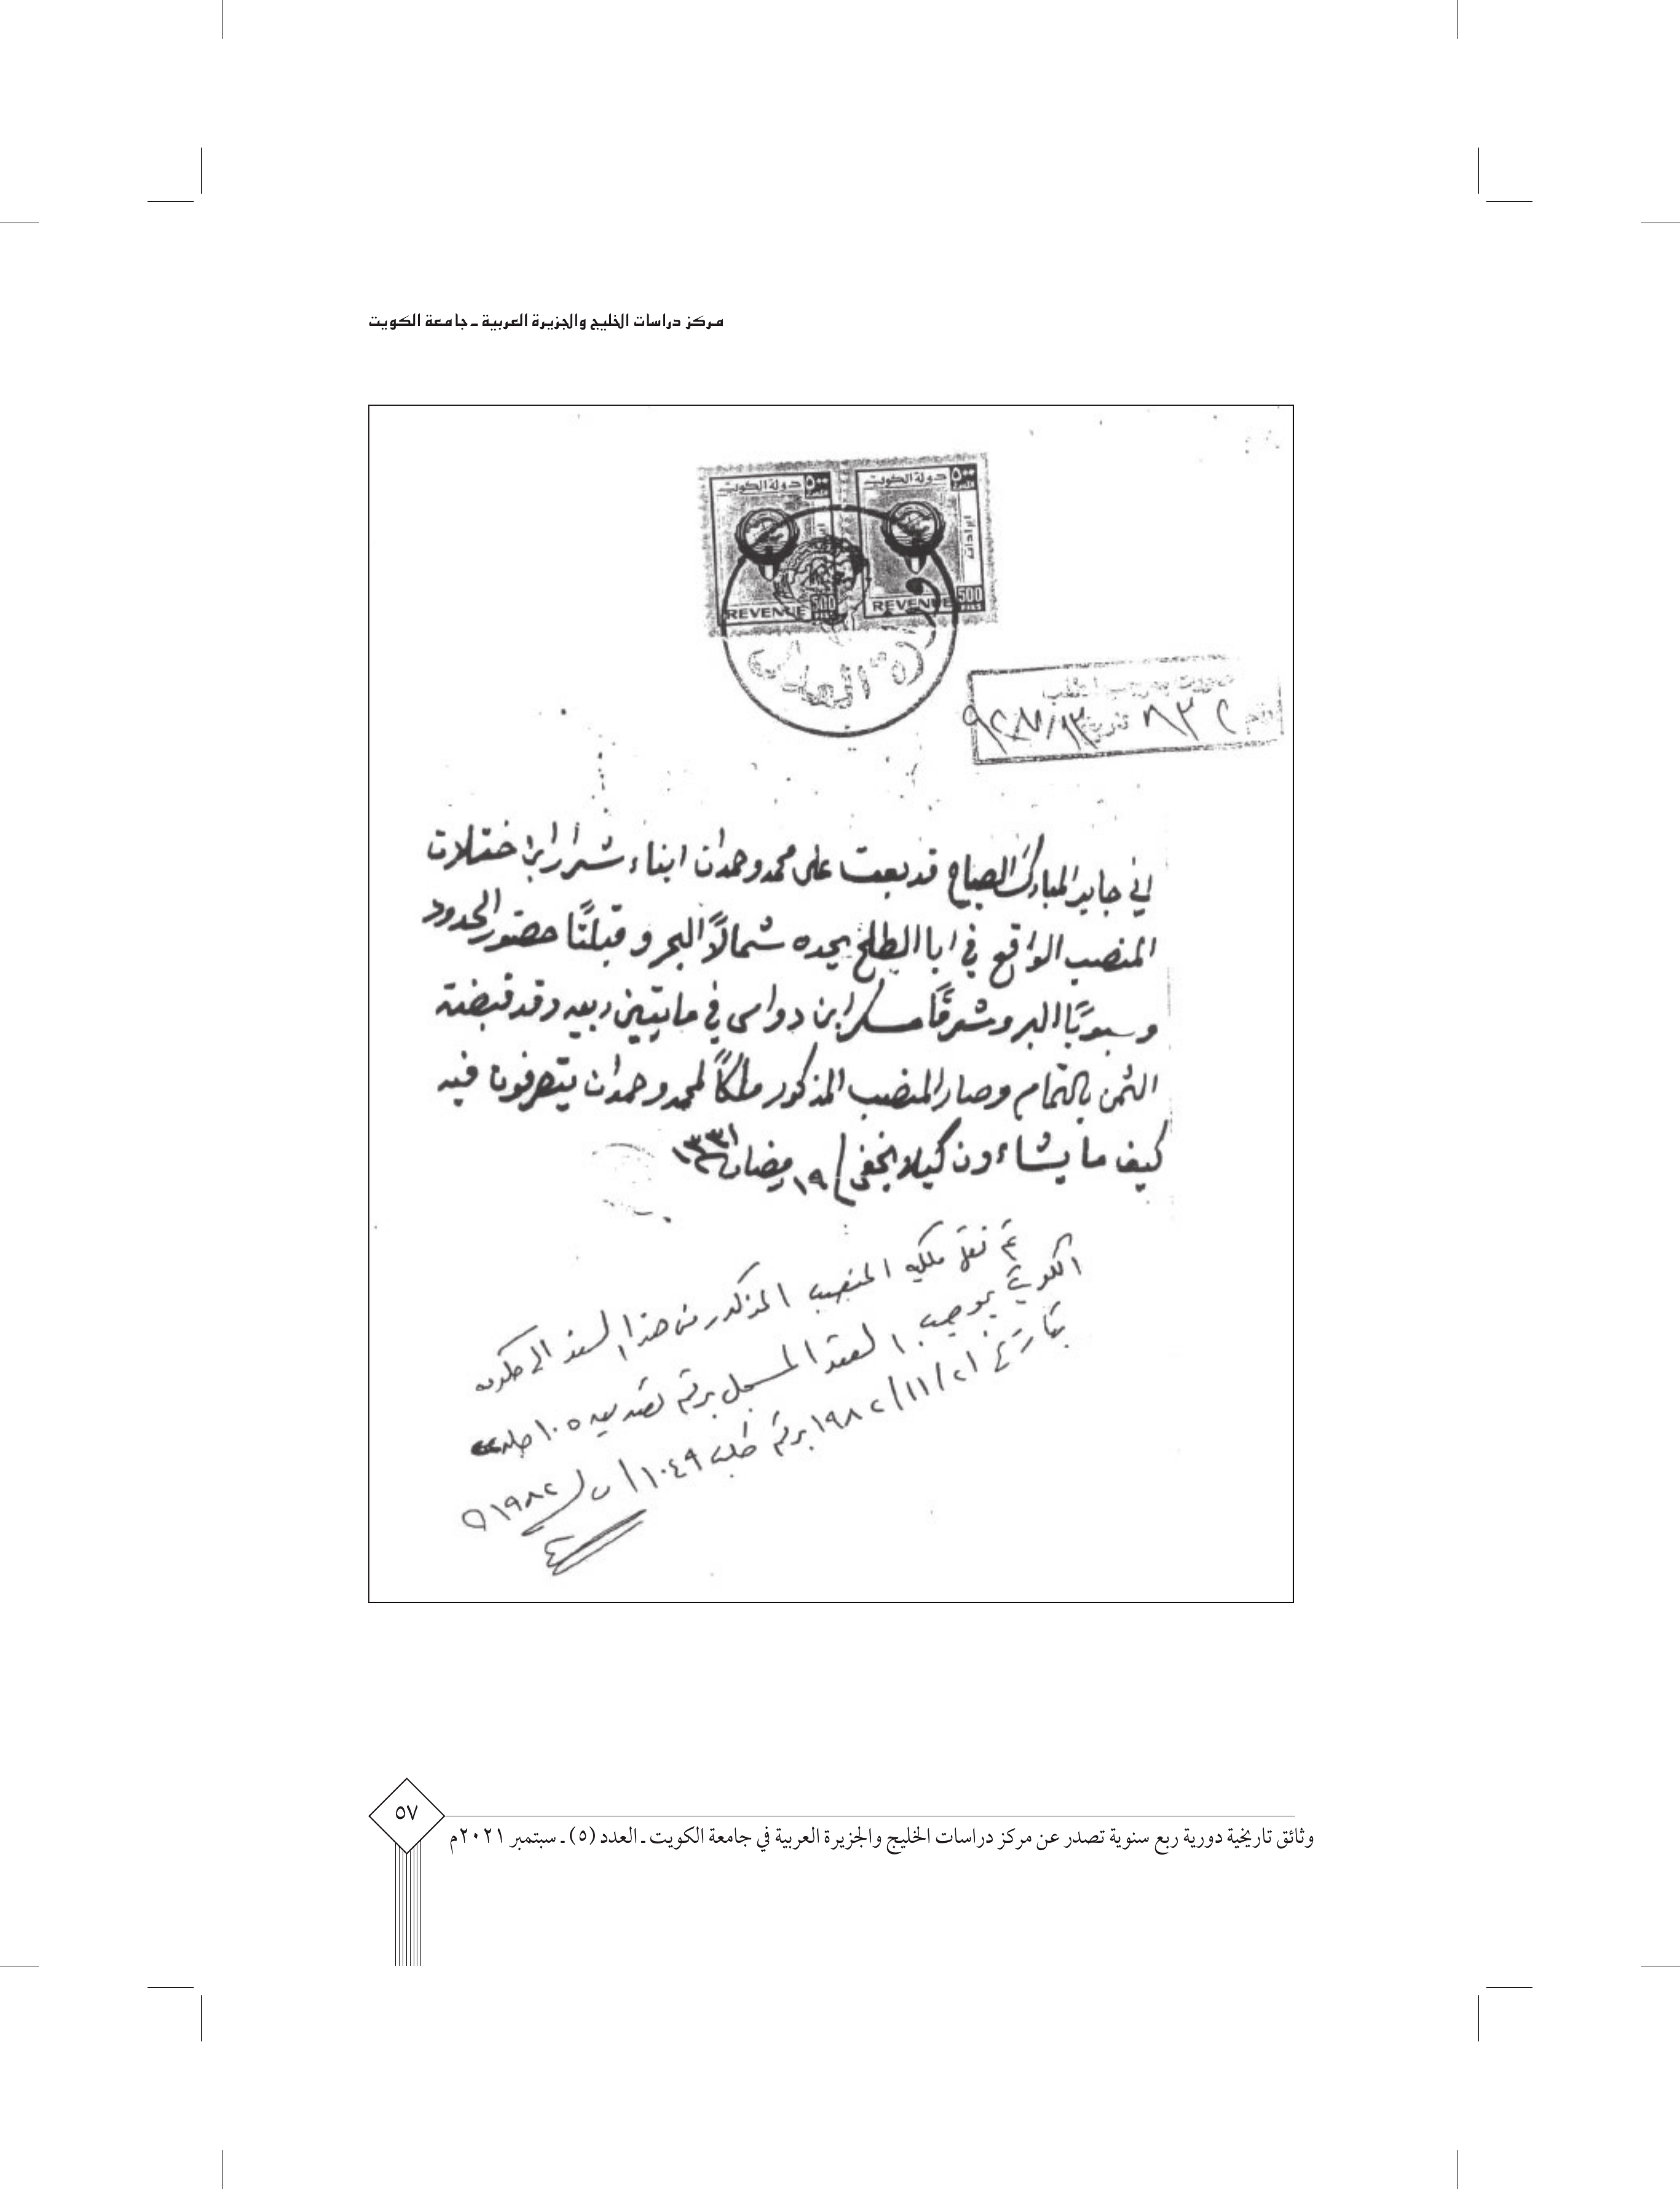 مركز دراسات الخليج والجزيرة العربية ـ جامعة الكويت
دولة الكويت ٥٠٠ دولة الكويت ٥٠٠
ايرادات
REVENUE 500 REVENUE 500 FILS
وزارة العدل
اني جابر المبارك الصباح قد بعت على محمد وحمدان ابناء شرار ابن ختلان
المنصب الواقع في ابا الطلح يحده شمالاً البحر و قبلتًا حضور الحدود
وجنوبًا البر وشرقًا مسكر ابن دواس في مايتين ربيه وقد قبضته
الثمن بالتمام وصار المنصب المذكور ملكاً لمحمد وحمدان يتصرفون فيه
كيف ما يشاءون كيلا يخفى / ١٩ رمضان ١٣٣١
تم نقل ملكيه المنصب المذكور من هذا السند الى حكومه
الكويت بموجب العقد المسجل برقم تصديق ١٠٥ جلد
بتاريخ ١٩٨٢/١١/٢١ برقم طلب ١٠٤٩
٥٧
وثائق تاريخية دورية ربع سنوية تصدر عن مركز دراسات الخليج والجزيرة العربية في جامعة الكويت ـ العدد (٥) ـ سبتمبر ٢٠٢١م